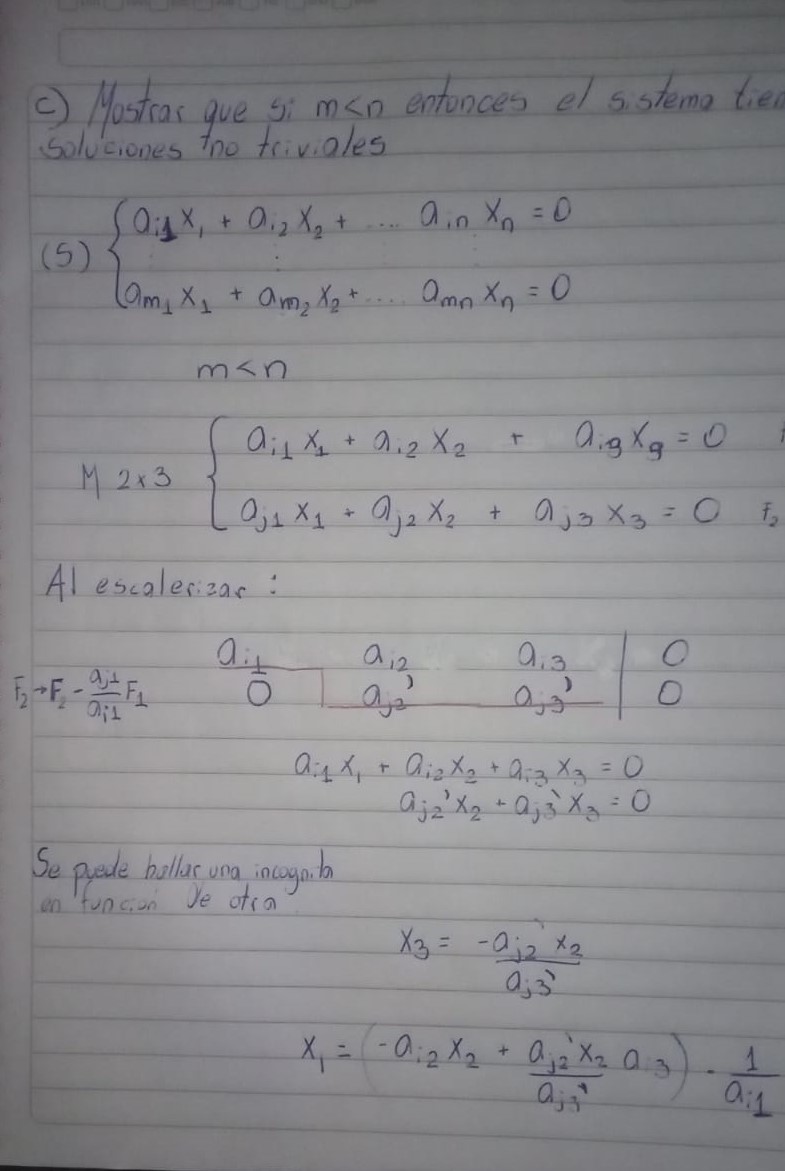 c) Mostrar que si m<n entonces el sistema tien
soluciones no triviales
(S) { ai1 x1 + ai2 x2 + .... ain xn = 0
⋮
am1 x1 + am2 x2 + .... amn xn = 0
m<n
M 2x3 { ai1 x1 + ai2 x2 + ai3 x3 = 0
aj1 x1 + aj2 x2 + aj3 x3 = 0 F2
Al escalerizar :
ai1 ai2 ai3 | 0
F2→F2 - aj1/ai1 F1 0 aj2' aj3' | 0
ai1 x1 + ai2 x2 + ai3 x3 = 0
aj2' x2 + aj3' x3 = 0
Se puede hallar una incognita
en funcion de otra
x3 = -aj2' x2 / aj3'
x1 = (-ai2 x2 + aj2' x2 / aj3' ai3) . 1/ai1